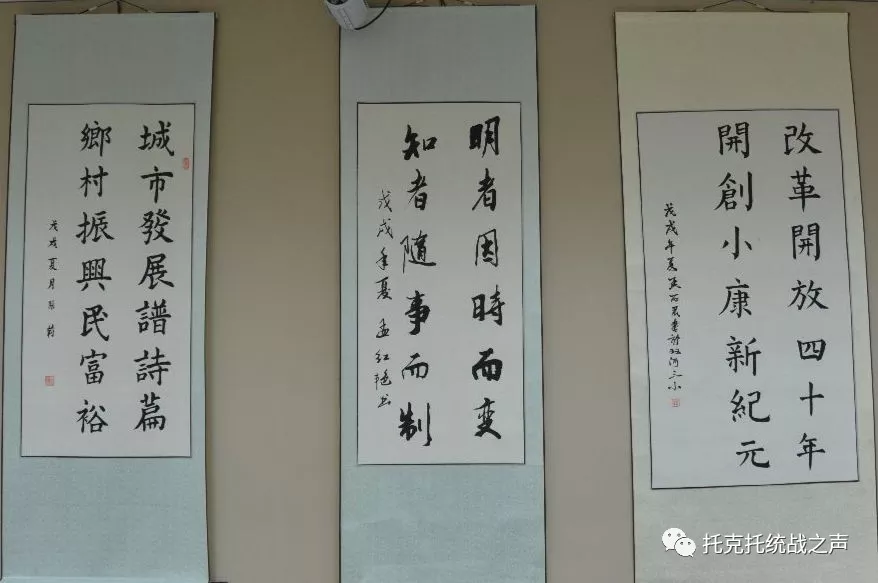 城市發展譜詩篇
鄉村振興民富裕
戊戌夏月
明者因時而变
知者隨事而制
戊戌年夏 孟红艳书
改革開放四十年
開創小康新紀元
戊戌年夏
托克托统战之声